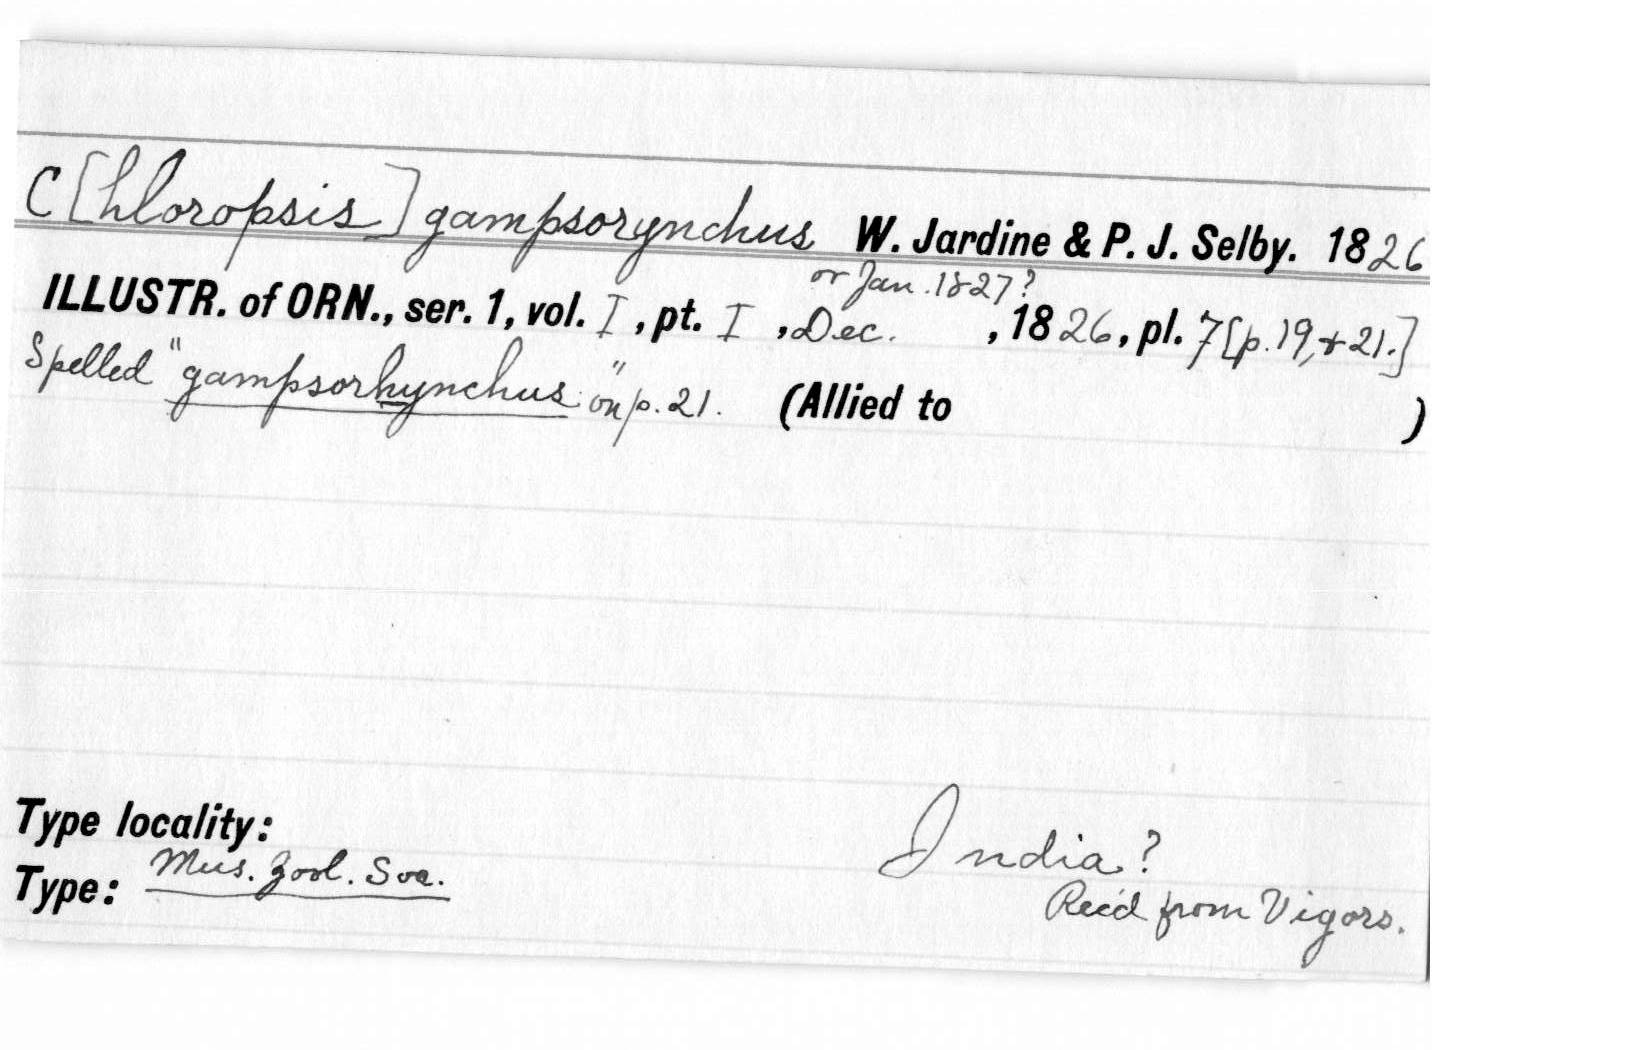 C[hloropsis] gampsorynchus W. Jardine & P. J. Selby. 1826
or Jan. 1827?
ILLUSTR. of ORN., ser. 1, vol. I, pt. I, Dec. , 1826, pl. 7 [p. 19, & 21.]
Spelled "gampsorhynchus" on p. 21. (Allied to )
Type locality: India?
Type: Mus. Zool. Soc. Rec'd from Vigors.